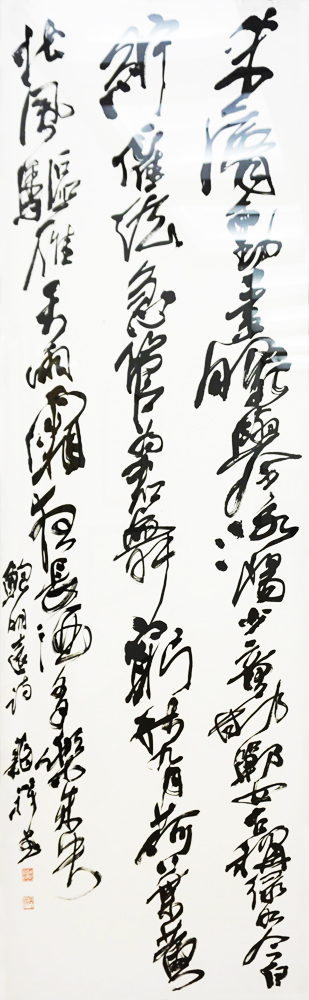 朱脣動素腕舉洛陽少童邯鄲女古稱淥水今白
紵催弦急管為君舞窮秋九月荷葉黃
北風驅雁天雨霜夜長酒多樂未央
鮑明遠詩